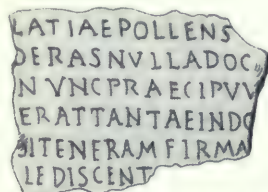 LATIAE POLLENS
DERAS NVLLA DOC
NVNC PRAECIPVV
ERAT TANTAE INDO
SITENERAM FIRMA
LE DISCENT